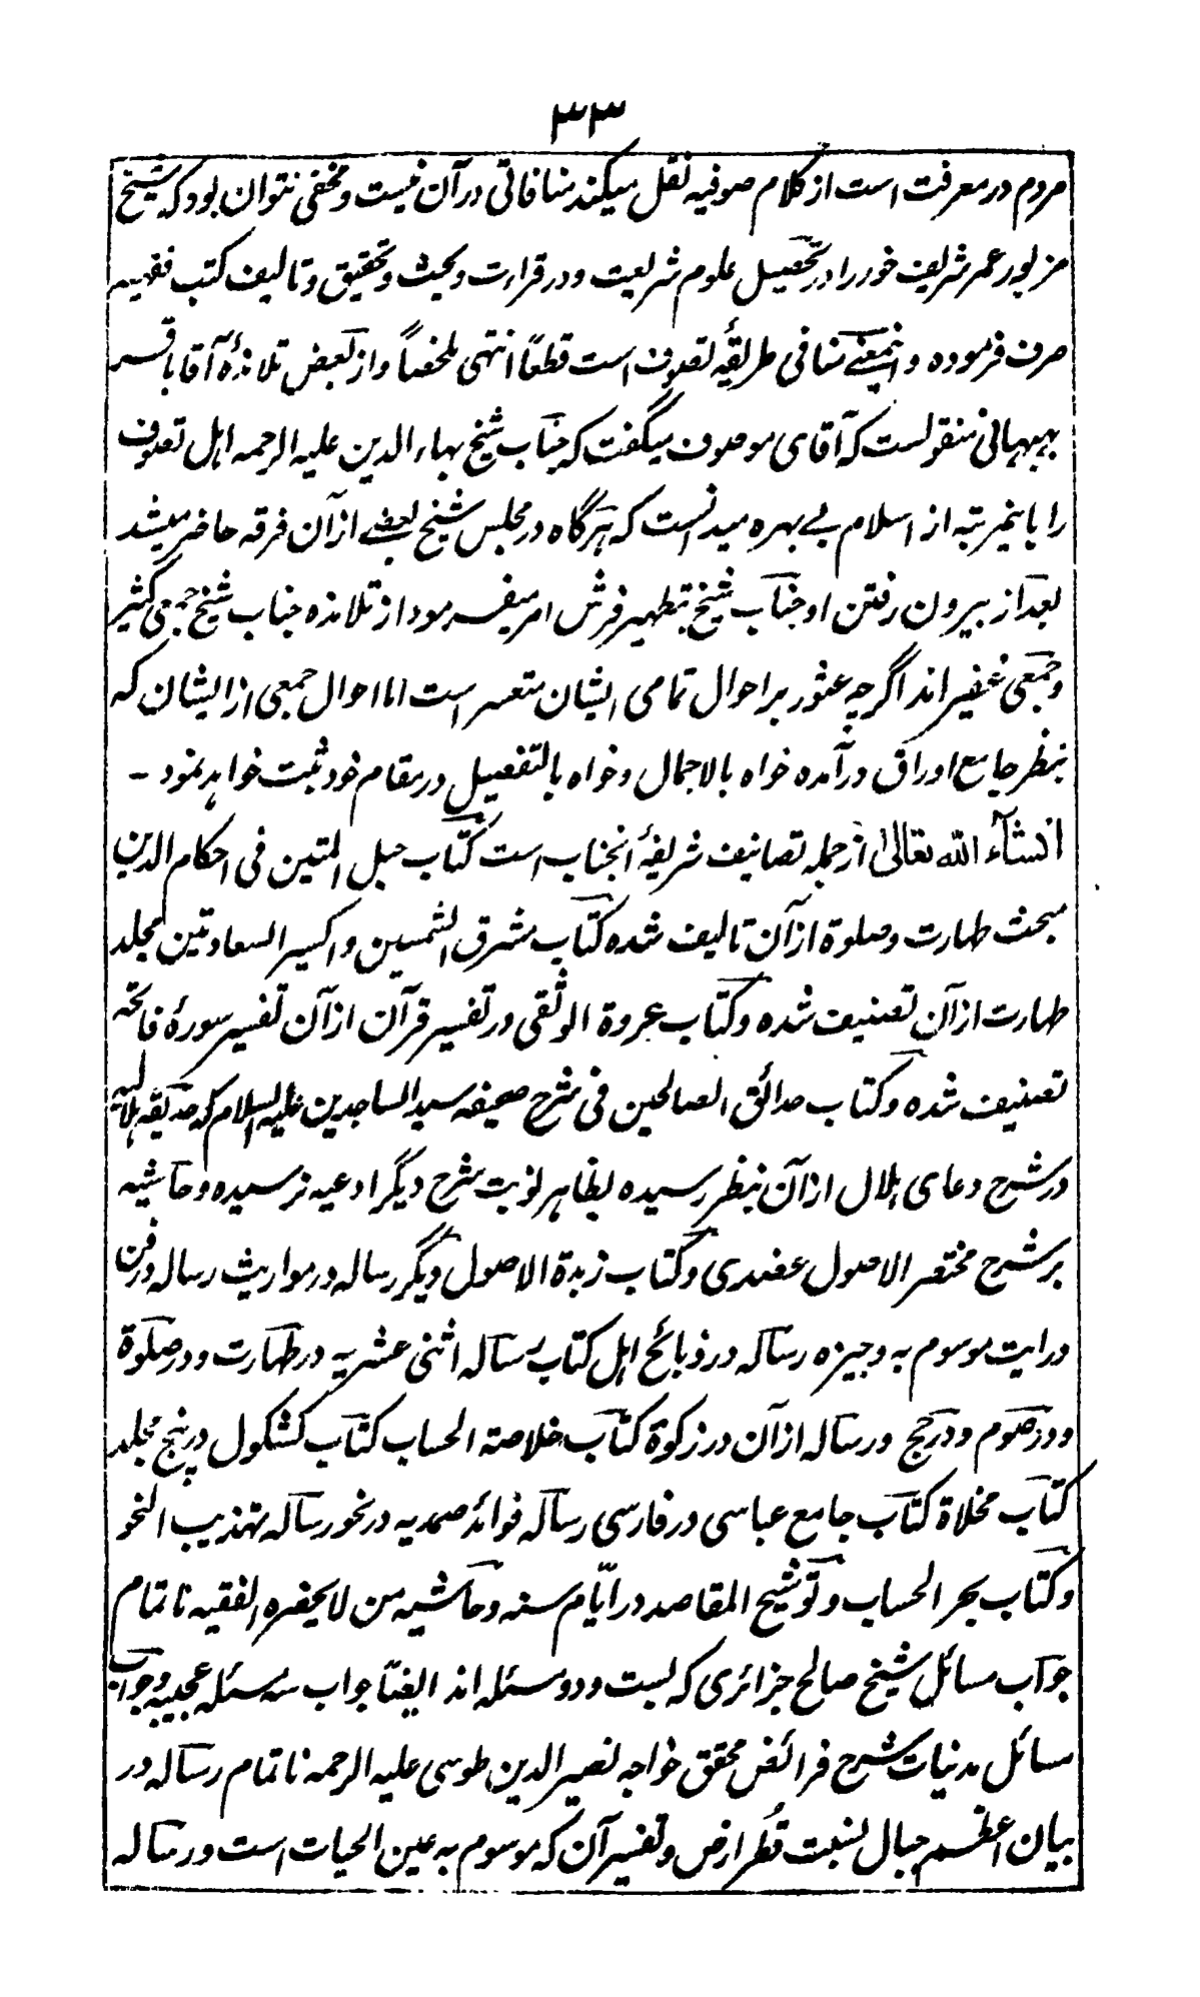 ۳۳
مردم در معرفت است از کلام صوفیه نقل میکند منافاتی در آن نیست و مخفی نتوان بود که شیخ
مزبور عمر شریف خود را در تحصیل علوم شریعت و در قراءت و بحث و تحقیق و تالیف کتب فقهیه
صرف فرموده و اینمعنے منافی طریقهٔ تصوف است قطعًا انتهی ملخصًا و از بعض تلامذهٔ آقا باقر
بهبهانی منقولست که آقای موصوف میگفت که جناب شیخ بهاء الدین علیه الرحمه اهل تصوف
را باینمرتبه از اسلام بے بهره میدانست که هرگاه در مجلس شیخ بعضے از آن فرقه حاضر میشد
بعد از بیرون رفتن او جناب شیخ بتطهیر فرش امر میفرمود از تلامذه جناب شیخ جمعی کثیر
و جمعی غفیر اند اگرچه عثور بر احوال تمامی ایشان متعسر است اما احوال جمعی از ایشان که
بنظر جامع اوراق در آمده خواه بالاجمال و خواه بالتفصیل در مقام خود ثبت خواهد نمود -
انشاء الله تعالیٰ از جمله تصانیف شریفهٔ آنجناب است کتاب حبل المتین فی احکام الدین
مبحث طهارت و صلوة از آن تالیف شده کتاب مشرق الشمسین و اکسیر السعادتین مجلد
طهارت از آن تصنیف شده و کتاب عروة الوثقی در تفسیر قرآن از آن تفسیر سورهٔ فاتحه
تصنیف شده و کتاب حدائق الصالحین فی شرح صحیفه سید الساجدین علیه السلام که حدیقه هلالیه
در شرح دعای هلال از آن بنظر رسیده بظاهر نوبت بشرح دیگر ادعیه نرسیده و حاشیه
بر شرح مختصر الاصول عضدی و کتاب زبدة الاصول دیگر رساله در مواریث رساله در فن
درایت موسوم به وجیزه رساله در ذبائح اهل کتاب رساله اثنی عشریه در طهارت و در صلوة
و در صوم و در حج و رساله از آن در زکوة کتاب خلاصة الحساب کتاب کشکول در پنج مجلد
کتاب مخلاة کتاب جامع عباسی در فارسی رساله فوائد صمدیه در نحو رساله تهذیب النحو
و کتاب بحر الحساب و توشیح المقاصد در ایّام سنه و حاشیه من لا یحضره الفقیه ناتمام
جواب مسائل شیخ صالح جزائری که بست و دو مسئله اند ایضًا جواب سه مسئله عجیبه و جواب
مسائل مدنیات شرح فرائض محقق خواجه نصیر الدین طوسی علیه الرحمه ناتمام رساله در
بیان اعظم جبال بنسبت قُطر ارض و تفسیر آن که موسوم به عین الحیات است و رساله